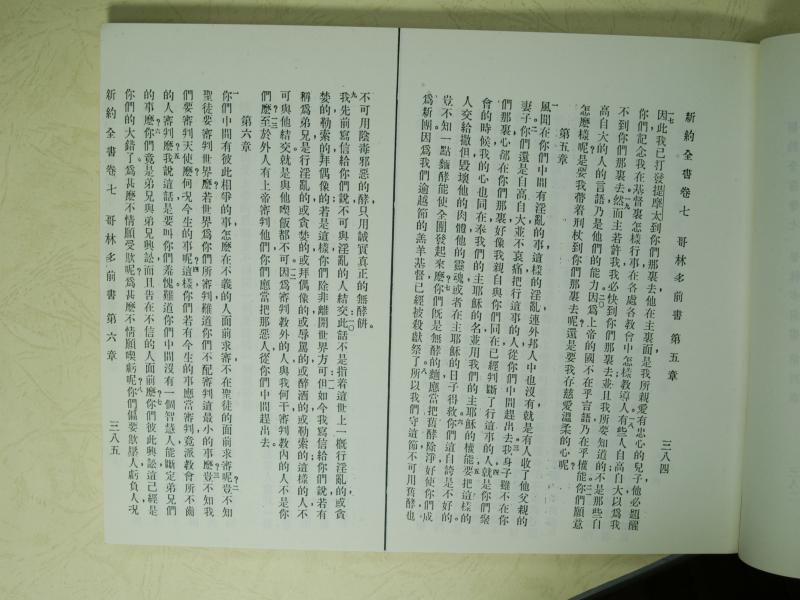 新約全書卷七 哥林多前書 第五章 三八四
因此我已打發提摩太到你們那裏去他在主裏面是我所親愛有忠心的兒子他必題醒
你們記念我在基督裏怎樣行事在各處各教會中怎樣教導人有些人自高自大以爲我
不到你們那裏去然而主若許我我必快到你們那裏去並且我所要知道的不是那些自
高自大的人的言語乃是他們的能力因爲上帝的國不在乎言語乃在乎權能你們願意
怎麽樣呢是要我帶着刑杖到你們那裏去呢還是要我存慈愛溫柔的心呢
第五章
風聞在你們中間有淫亂的事這樣的淫亂連外邦人中也沒有就是有人收了他父親的
妻子你們還是自高自大並不哀痛把行這事的人從你們中間趕出去我身子雖不在你
們那裏心却在你們那裏好像我親自與你們同在已經判斷了行這事的人就是你們聚
會的時候我的心也同在奉我們的主耶穌的名並用我們的主耶穌的權能要把這樣的
人交給撒但毀壞他的肉體他的靈魂或者在主耶穌的日子得救你們這自誇是不好的
豈不知一點麵酵能使全團發起來麽你們旣是無酵的麵應當把舊酵除淨好使你們成
爲新團因爲我們逾越節的羔羊基督已經被殺獻祭了所以我們守這節不可用舊酵也
不可用陰毒邪惡的酵只用誠實真正的無酵餅
我先前寫信給你們說不可與淫亂的人結交此話不是指着這世上一槪行淫亂的或貪
婪的勒索的拜偶像的若是這樣你們除非離開世界方可但如今我寫信給你們說若有
稱爲弟兄是行淫亂的或貪婪的或拜偶像的或辱罵的或醉酒的或勒索的這樣的人不
可與他結交就是與他喫飯都不可因爲審判敎外的人與我何干審判敎內的人不是你
們麽至於外人有上帝審判他們你們應當把那惡人從你們中間趕出去
第六章
你們中間有彼此相爭的事怎麽在不義的人面前求審不在聖徒的面前求審呢豈不知
聖徒要審判世界麽若世界爲你們所審判難道你們不配審判這最小的事麽豈不知我
們要審判天使麽何况今生的事呢這樣你們若有今生的事應當審判竟派敎會所不齒
的人審判麽我說這話是要叫你們羞愧難道你們中間沒有一個智慧人能斷定弟兄們
的事麽你們竟是弟兄與弟兄興訟而且告在不信的人面前麽你們彼此興訟這已經是
你們的大錯了爲甚麽不情願受欺呢爲甚麽不情願喫虧呢你們偏要欺壓人虧負人况
新約全書卷七 哥林多前書 第六章 三八五